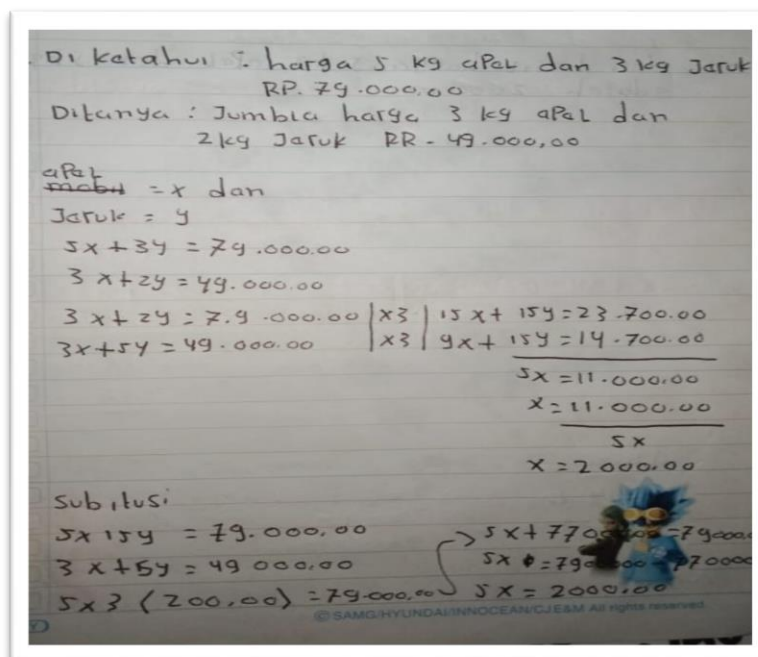 Di ketahui : harga 5 kg apel dan 3 kg Jeruk
RP. 79.000,00
Ditanya : Jumbla harga 3 kg apel dan
2 kg Jeruk RR - 49.000,00
apel
mobil = x dan
Jeruk = y
5x + 3y = 79.000.00
3x + 2y = 49.000.00
3x + 2y = 7.9.000.00 | x3 | 15x + 15y = 23.700.00
3x + 5y = 49.000.00 | x3 | 9x + 15y = 14.700.00
5x = 11.000.00
x = 11.000.00
5x
x = 2000.00
Subitusi
5x 15y = 79.000,00
3x + 5y = 49 000,00
5x3 (200,00) = 79.000,00
5x +
5x
5x = 2000.00
© SAMG/HYUNDAI/INNOCEAN/CJ E&M All rights reserved